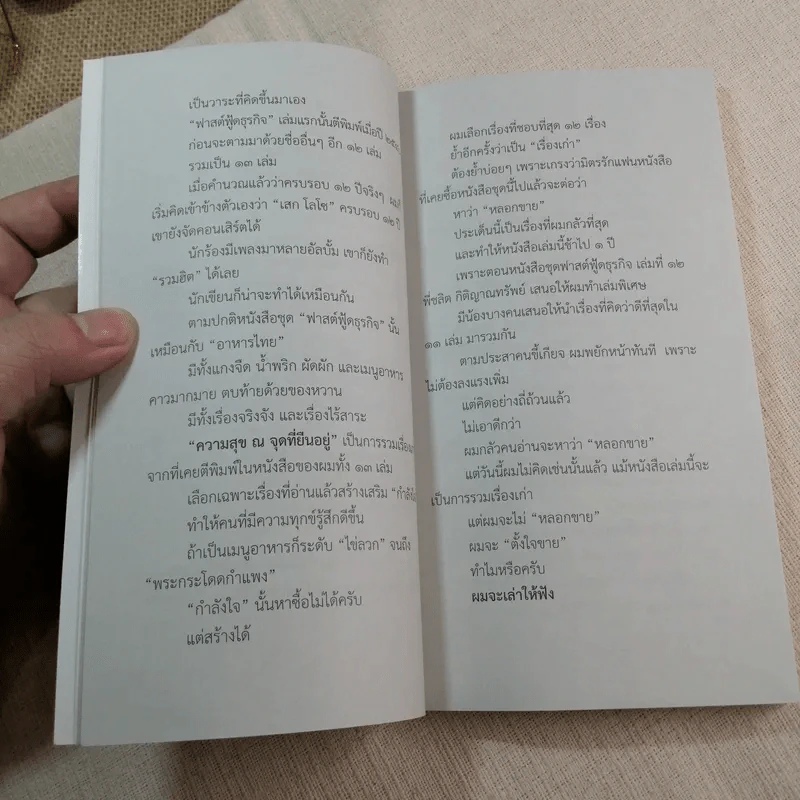 เป็นวาระที่คิดขึ้นมาเอง
"ฟาสต์ฟู้ดธุรกิจ" เล่มแรกนั้นตีพิมพ์เมื่อปี
ก่อนจะตามมาด้วยชื่ออื่นๆ อีก ๑๒ เล่ม
รวมเป็น ๑๓ เล่ม
เมื่อคำนวณแล้วว่าครบรอบ ๑๒ ปีจริงๆ ผมก็
เริ่มคิดเข้าข้างตัวเองว่า "เสก โลโซ" ครบรอบ ๑๒ ปี
เขายังจัดคอนเสิร์ตได้
นักร้องมีเพลงมาหลายอัลบั้ม เขาก็ยังทำ
"รวมฮิต" ได้เลย
นักเขียนก็น่าจะทำได้เหมือนกัน
ตามปกติหนังสือชุด "ฟาสต์ฟู้ดธุรกิจ" นั้น
เหมือนกับ "อาหารไทย"
มีทั้งแกงจืด น้ำพริก ผัดผัก และเมนูอาหาร
คาวมากมาย ตบท้ายด้วยของหวาน
มีทั้งเรื่องจริงจัง และเรื่องไร้สาระ
"ความสุข ณ จุดที่ยืนอยู่" เป็นการรวมเรื่อง
จากที่เคยตีพิมพ์ในหนังสือของผมทั้ง ๑๓ เล่ม
เลือกเฉพาะเรื่องที่อ่านแล้วสร้างเสริม "กำลังใจ
ทำให้คนที่มีความทุกข์รู้สึกดีขึ้น
ถ้าเป็นเมนูอาหารก็ระดับ "ไข่ลวก" จนถึง
"พระกระโดดกำแพง"
"กำลังใจ" นั้นหาซื้อไม่ได้ครับ
แต่สร้างได้
ผมเลือกเรื่องที่ชอบที่สุด ๑๒ เรื่อง
ย้ำอีกครั้งว่าเป็น "เรื่องเก่า"
ต้องย้ำบ่อยๆ เพราะเกรงว่ามิตรรักแฟนหนังสือ
ที่เคยซื้อหนังสือชุดนี้ไปแล้วจะต่อว่า
หาว่า "หลอกขาย"
ประเด็นนี้เป็นเรื่องที่ผมกลัวที่สุด
และทำให้หนังสือเล่มนี้ช้าไป ๑ ปี
เพราะตอนหนังสือชุดฟาสต์ฟู้ดธุรกิจ เล่มที่ ๑๒
พี่ชลิต กิติญาณทรัพย์ เสนอให้ผมทำเล่มพิเศษ
มีน้องบางคนเสนอให้นำเรื่องที่คิดว่าดีที่สุดใน
๑๑ เล่ม มารวมกัน
ตามประสาคนขี้เกียจ ผมพยักหน้าทันที เพราะ
ไม่ต้องลงแรงเพิ่ม
แต่คิดอย่างถี่ถ้วนแล้ว
ไม่เอาดีกว่า
ผมกลัวคนอ่านจะหาว่า "หลอกขาย"
แต่วันนี้ผมไม่คิดเช่นนั้นแล้ว แม้หนังสือเล่มนี้จะ
เป็นการรวมเรื่องเก่า
แต่ผมจะไม่ "หลอกขาย"
ผมจะ "ตั้งใจขาย"
ทำไมหรือครับ
ผมจะเล่าให้ฟัง